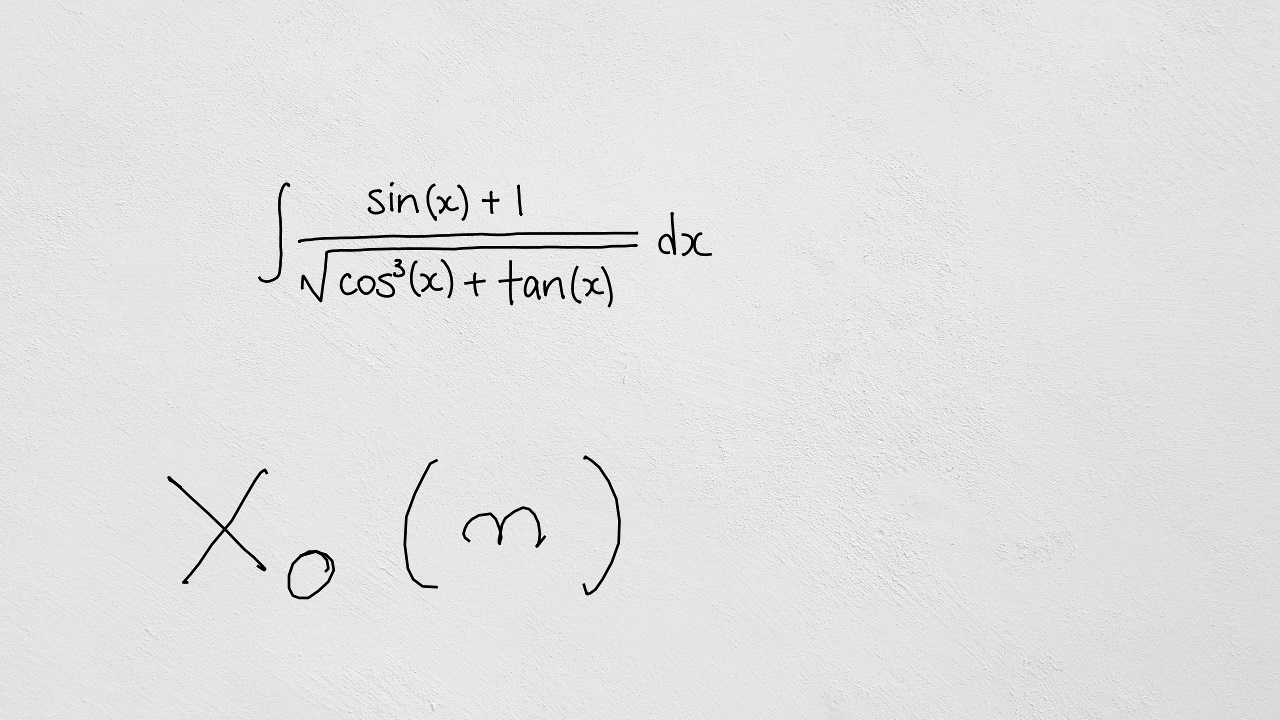 ∫ (sin(x) + 1) / √(cos³(x) + tan(x)) dx
X₀ (m)